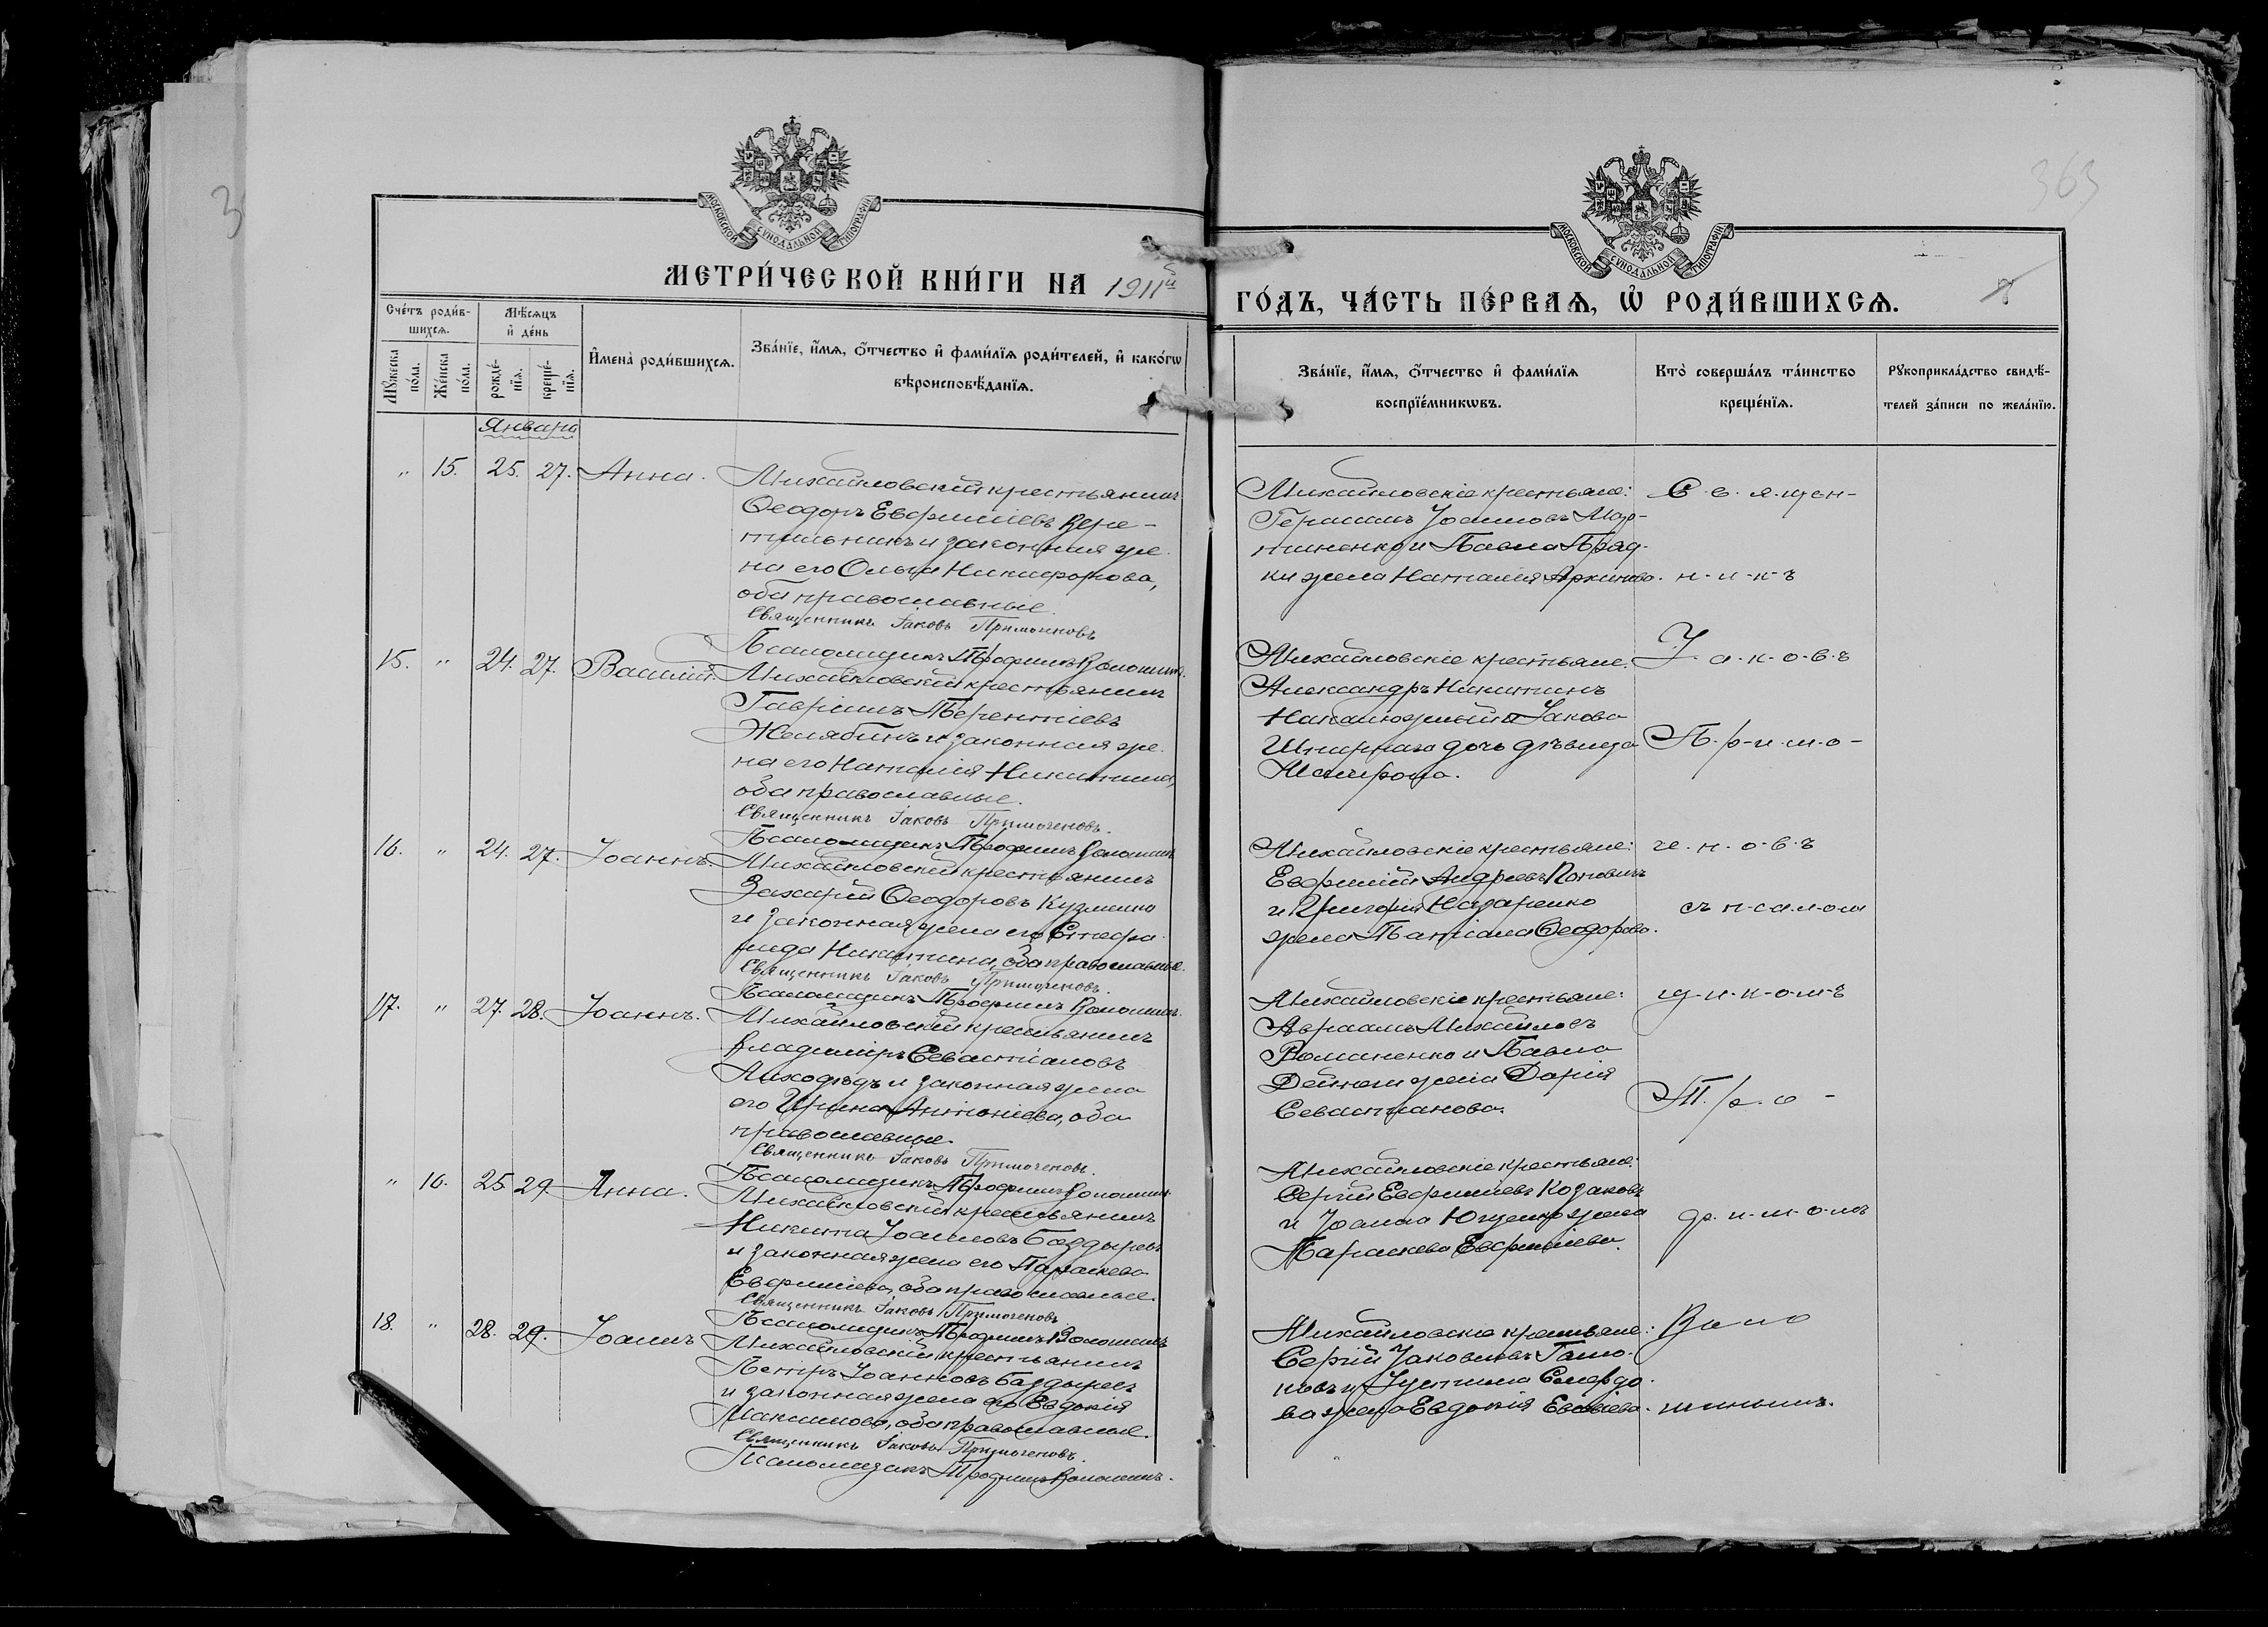 363
МОСКОВСКОЙ СУНОДАЛЬНОЙ ТИПОГРАФІИ
МОСКОВСКОЙ СУНОДАЛЬНОЙ ТИПОГРАФІИ
МЕТРИ́ЧЕСКОЙ КНИ́ГИ НА 1911й
ГО́ДЪ, ЧА́СТЬ ПЕ́РВАѦ, Ѡ҆ РОДИ́ВШИХСѦ.
Сче́тъ роди́в-
шихсѧ.
Мꙋ́жеска по́ла.
Же́нска по́ла.
Мѣ́сѧцъ
и҆ де́нь
рожде́-
нїѧ.
креще́-
нїѧ.
И҆мена̀ роди́вшихсѧ.
Зва́нїе, и҆́мѧ, ѻ҆́тчество и҆ фами́лїѧ роди́телей, и҆ како́гѡ
вѣроисповѣ́данїѧ.
Зва́нїе, и҆́мѧ, ѻ҆́тчество и҆ фами́лїѧ
воспрїе́мникѡвъ.
Кто̀ соверша́лъ та́инство
креще́нїѧ.
Рꙋкоприкла́дство свидѣ́-
телей за́писи по жела́нїю.
Январь
" 15. 25. 27. Анна.
Михайловскій крестьянинъ
Ѳеодоръ Евфиміевъ Вере-
тильникъ и законная же-
на его Ольга Никифорова,
оба православные.
Священникъ Іаковъ Примоченовъ
Псаломщикъ Трофимъ Волошинъ.
Михайловскіе крестьяне:
Герасимъ Іоанновъ Мар-
тиненко и Павла Пряд-
ки жена Наталія Архипова.
15. " 24. 27. Василій.
Михайловскій крестьянинъ
Гавріилъ Терентіевъ
Желябинъ и законная же-
на его Наталія Никитина,
оба православные.
Священникъ Іаковъ Примоченовъ.
Псаломщикъ Трофимъ Волошинъ
Михайловскіе крестьяне:
Александръ Никитинъ
и Іакова
дочь дѣвица
16. " 24. 27. Іоаннъ.
Михайловскій крестьянинъ
Захарій Ѳеодоровъ Кузменко
и законная жена его Стефа-
нида Никитина, оба православные.
Священникъ Іаковъ Примоченовъ.
Псаломщикъ Трофимъ Волошинъ.
Михайловскіе крестьяне:
Евфимій Андреевъ Поповичъ
и Григорія Назаренко
жена Татіана Ѳеодорова.
17. " 27. 28. Іоаннъ.
Михайловскій крестьянинъ
Владиміръ Севастіановъ
Лиходѣдъ и законная жена
его Ирина Антоніева, оба
православные.
Священникъ Іаковъ Примоченовъ.
Псаломщикъ Трофимъ Волошинъ.
Михайловскіе крестьяне:
Авраамъ Михайловъ
Романенко и Павла
Дейнеги жена Дарія
Севастіанова.
" 16. 25. 29. Анна.
Михайловскій крестьянинъ
Никита Іоанновъ Баздыревъ
и законная жена его Параскева
Евфиміева, оба православные.
Священникъ Іаковъ Примоченовъ
Псаломщикъ Трофимъ Волошинъ
Михайловскіе крестьяне:
Сергій Евфиміевъ Козаковъ
и Іоанна Ющенко жена
Параскева Евфиміева.
18. " 28. 29. Іоаннъ
Михайловскій крестьянинъ
Петръ Іоанновъ Баздыревъ
и законная жена его Евдокія
Максимова, оба православные.
Священникъ Іаковъ Примоченовъ.
Псаломщикъ Трофимъ Волошинъ.
Михайловскіе крестьяне:
Сергій Іаковлевъ
и Іустина
жена Евдокія
С-в-я-щен-
н-и-к-ъ
І-а-к-о-в-ъ
П-р-и-м-о-
че-н-о-в-ъ
съ п-с-а-л-о-м
щ-и-к-о-м-ъ
Т-р-о-
ф-и-м-о-мъ
Воло
шинымъ.